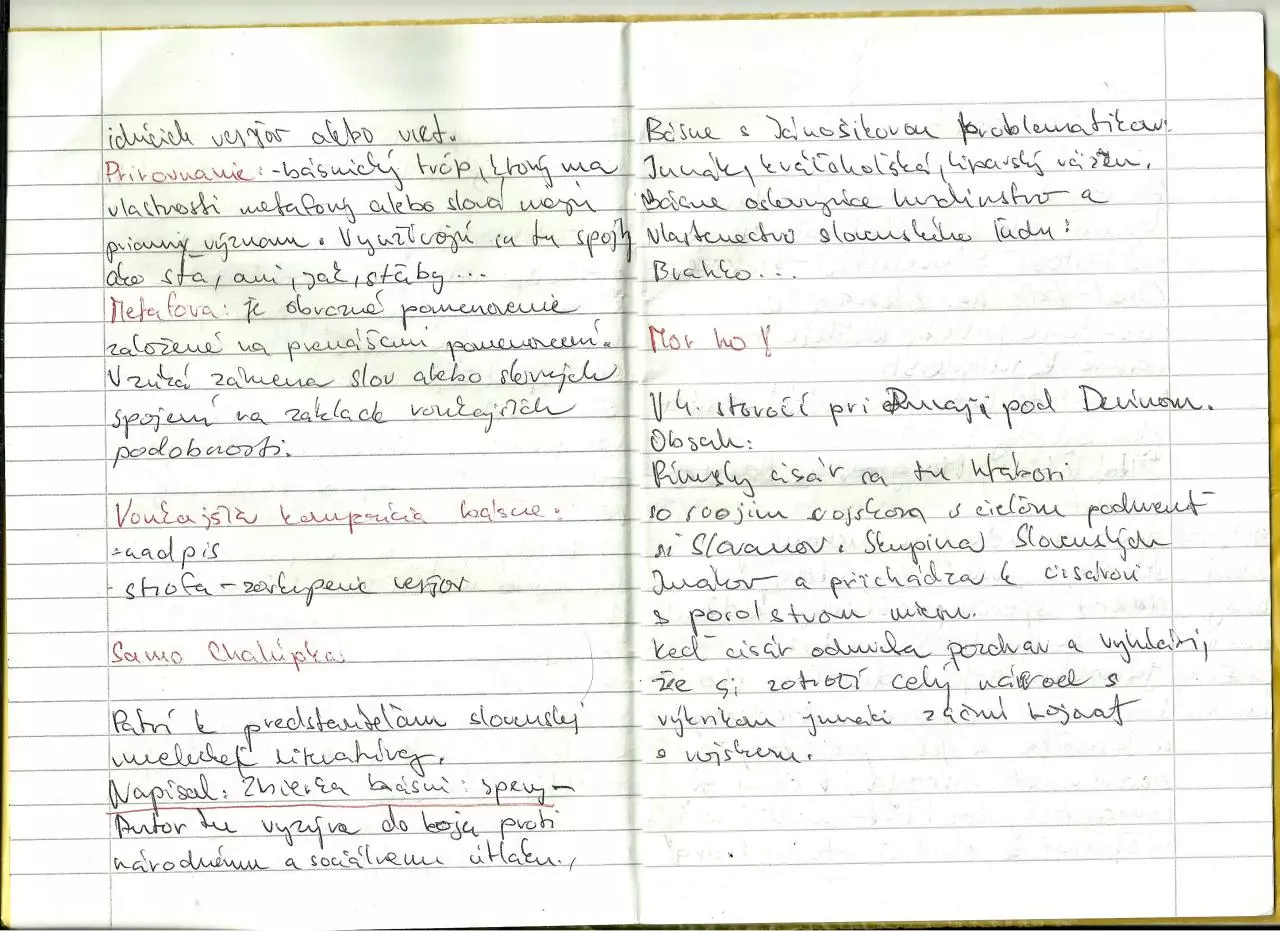 idúcich veršov alebo viet.
Prirovnanie: - básnický tróp, ktorý ma
vlastnosti metafory alebo slová majú
priamy význam. Využívajú sa tu spojky
ako sťa, ani, jak, sťaby...
Metafora: je obrazné pomenovanie
založené na prenášaní pomenovaní.
Vzniká zámena slov alebo slovných
spojení na základe vonkajších
podobností.
Vonkajšia kompozícia básne:
- nadpis
- strofa - zoskupenie veršov
Samo Chalúpka
Patrí k predstaviteľom slovenskej
literatúry.
Napísal: Zbierka básní: spevy -
Autor tu vyzýva do boja proti
národnému a sociálnemu útlaku.,
Básne s Jánošíkovou problematikou:
Junák, kráľohoľská, likavský väzeň.
Básne oslavujúce hrdinstvo a
vlastenectvo slovenského ľudu:
Branko...
Mor ho!
V 4. storočí pri Dunaji pod Devínom.
Obsah:
Rímsky cisár sa tu utáboril
so svojim vojskom s cieľom podmaniť
si Slovanov. Skupina Slovenských
Junákov a prichádza k cisárovi
s posolstvom mieru.
keď cisár odmieta pozdrav a vyhlási,
že si zotročí celý národ s
výkrikom junáci začnú bojovať
s vojskom.